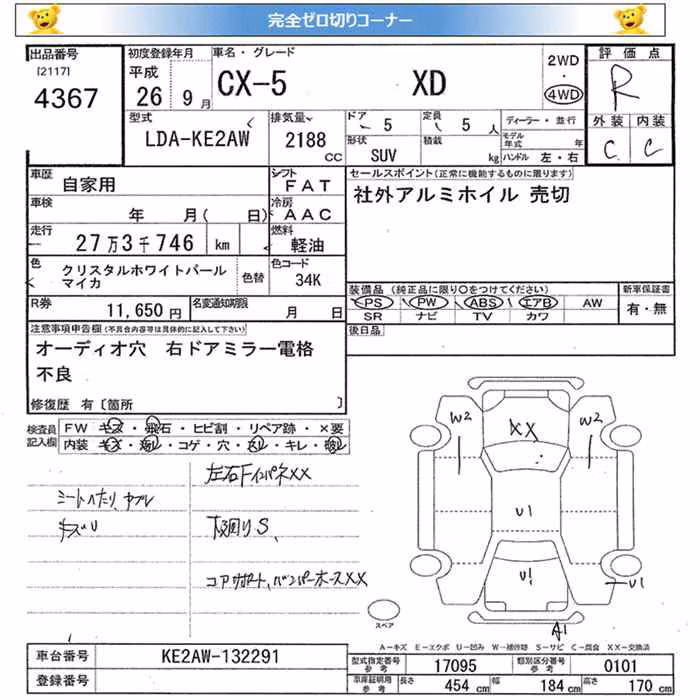 完全ゼロ切りコーナー
出品番号
[2117]
4367
初度登録年月
平成
26 9月
車名・グレード
CX-5 XD
2WD
・
4WD
評価点
R
外装 内装
C C
型式
LDA-KE2AW
排気量
2188
CC
ドア
5
定員
5 人
形状
SUV
積載
kg
ディーラー・並行
モデル年式 年
ハンドル 左・右
車歴
自家用
シフト
FAT
車検
年 月( 日)
冷房
AAC
走行
27万3千746 km
燃料
軽油
色
クリスタルホワイトパールマイカ
色替
色コード
34K
R券
11,650 円
名変通知期限
月 日
セールスポイント(正常に機能するものに限ります)
社外アルミホイル 売切
装備品 (純正品に限り○をつけてください)
PS PW ABS エアB AW
SR ナビ TV カワ
新車保証書
有・無
後日品
注意事項申告欄(不具合内容等は具体的に記入して下さい)
オーディオ穴 右ドアミラー電格
不良
修復歴 有〔箇所 〕
検査員記入欄
FW キズ・飛石・ヒビ割・リペア跡・×要
内装 キズ・汚レ・コゲ・穴・スレ・キレ・破レ
左右Fインパネ××
シートヘタリ、ヤブレ
キズU
下廻りS、
コアサポート、バンパーホースXX
W2
XX
W2
U1
U1
U1
A1
スペア
A-キズ E-エクボ U-凹み W-補修跡 S-サビ C-腐食 XX-交換済
車台番号
KE2AW-132291
登録番号
型式指定番号
参考
17095
類別区分番号
参考
0101
車庫証明用
参考
長さ 454 cm 幅 184 cm 高さ 170 cm